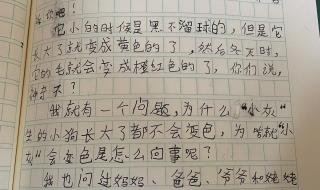 你吧！
它小的时候是黑不溜球的，但是它
长大了就变成黄色的了，然后冬天时，
它的毛就会变成橙红色的了，你们说，
神奇不？
我就有一个问题，为什么“小灰”
生的小狗长大了都不会变色，为啥就“小
灰”会变色是怎么回事呢？
我也问过妈妈、爸爸、爷爷和姥姥